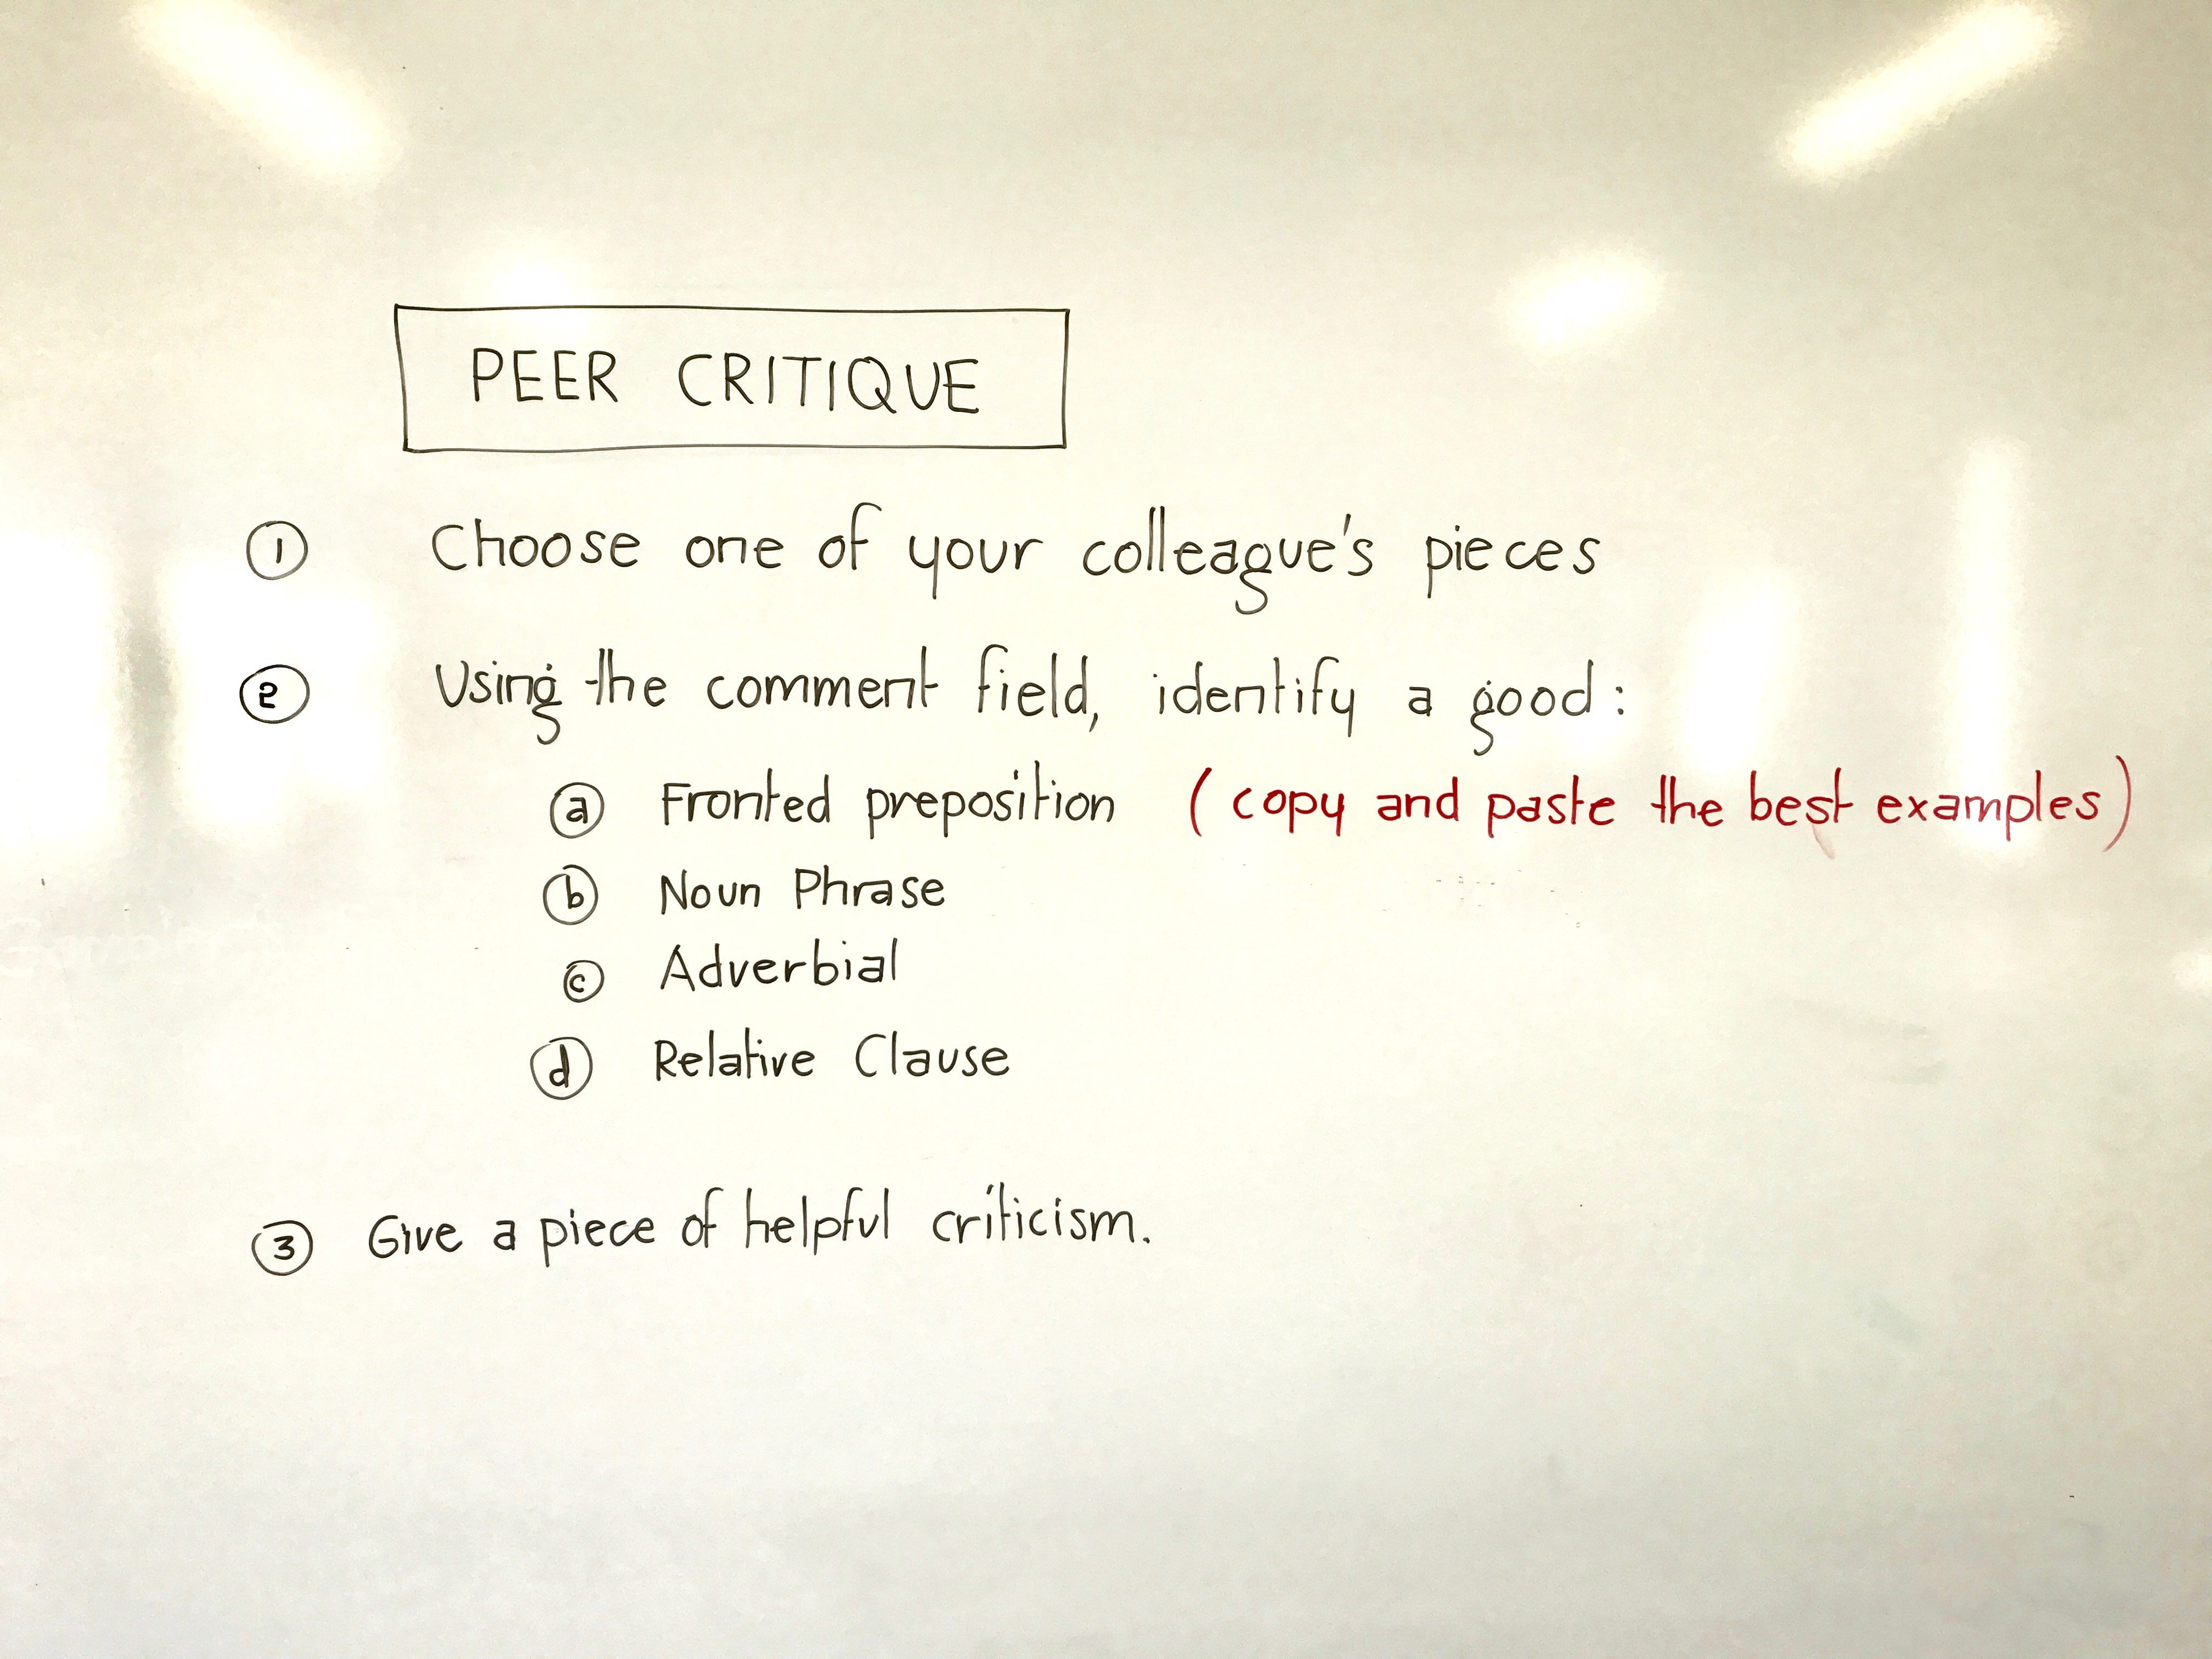 PEER CRITIQUE
① Choose one of your colleague's pieces
② Using the comment field, identify a good:
ⓐ Fronted preposition (copy and paste the best examples)
ⓑ Noun Phrase
ⓒ Adverbial
ⓓ Relative Clause
③ Give a piece of helpful criticism.